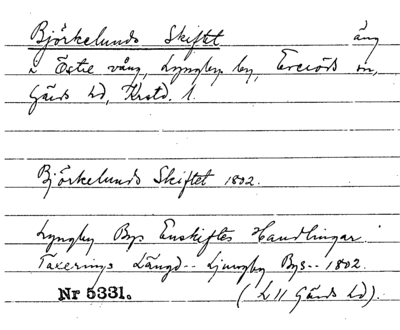 Björkelunds Skiftet äng
i Östre vång, Lyngby by, Everöds sn,
Gärds hd, Krstd. l.
Björkelunds Skiftet 1802.
Lyngby Bys Enskiftes Handlingar
Taxerings Längd -- Ljungby Bys -- 1802.
Nr 5331. (L II Gärds hd).